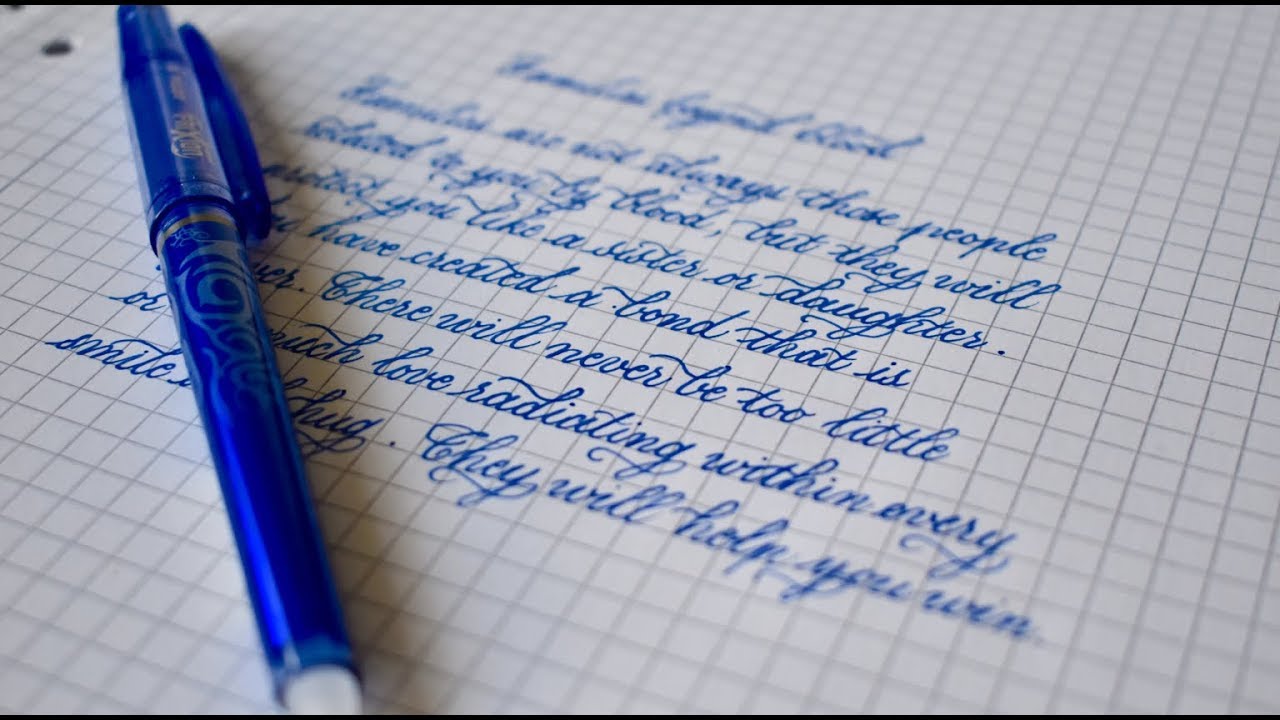 Families beyond blood
Families are not always those people
related to you by blood, but they will
protect you like a sister or daughter.
have created a bond that is
There will never be too little
or much love radiating within every
smile hug. They will help you win.